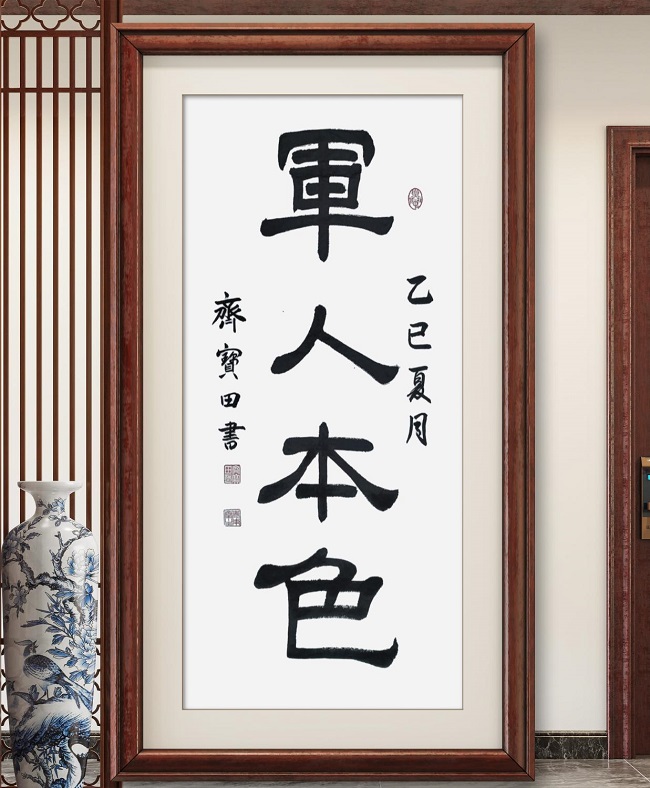 乙巳夏月
軍人本色
齊寶田書